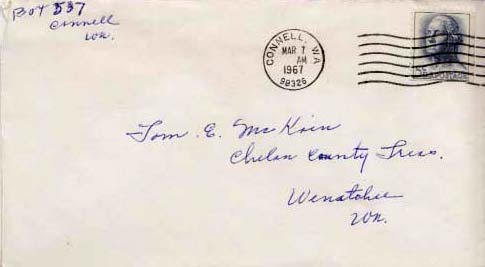 Box 537
Connell
Wn.
CONNELL, WA
MAR 7
AM
1967
98326
5¢ POSTAGE
Tom E. McKoin
Chelan County Treas.
Wenatchee
Wn.